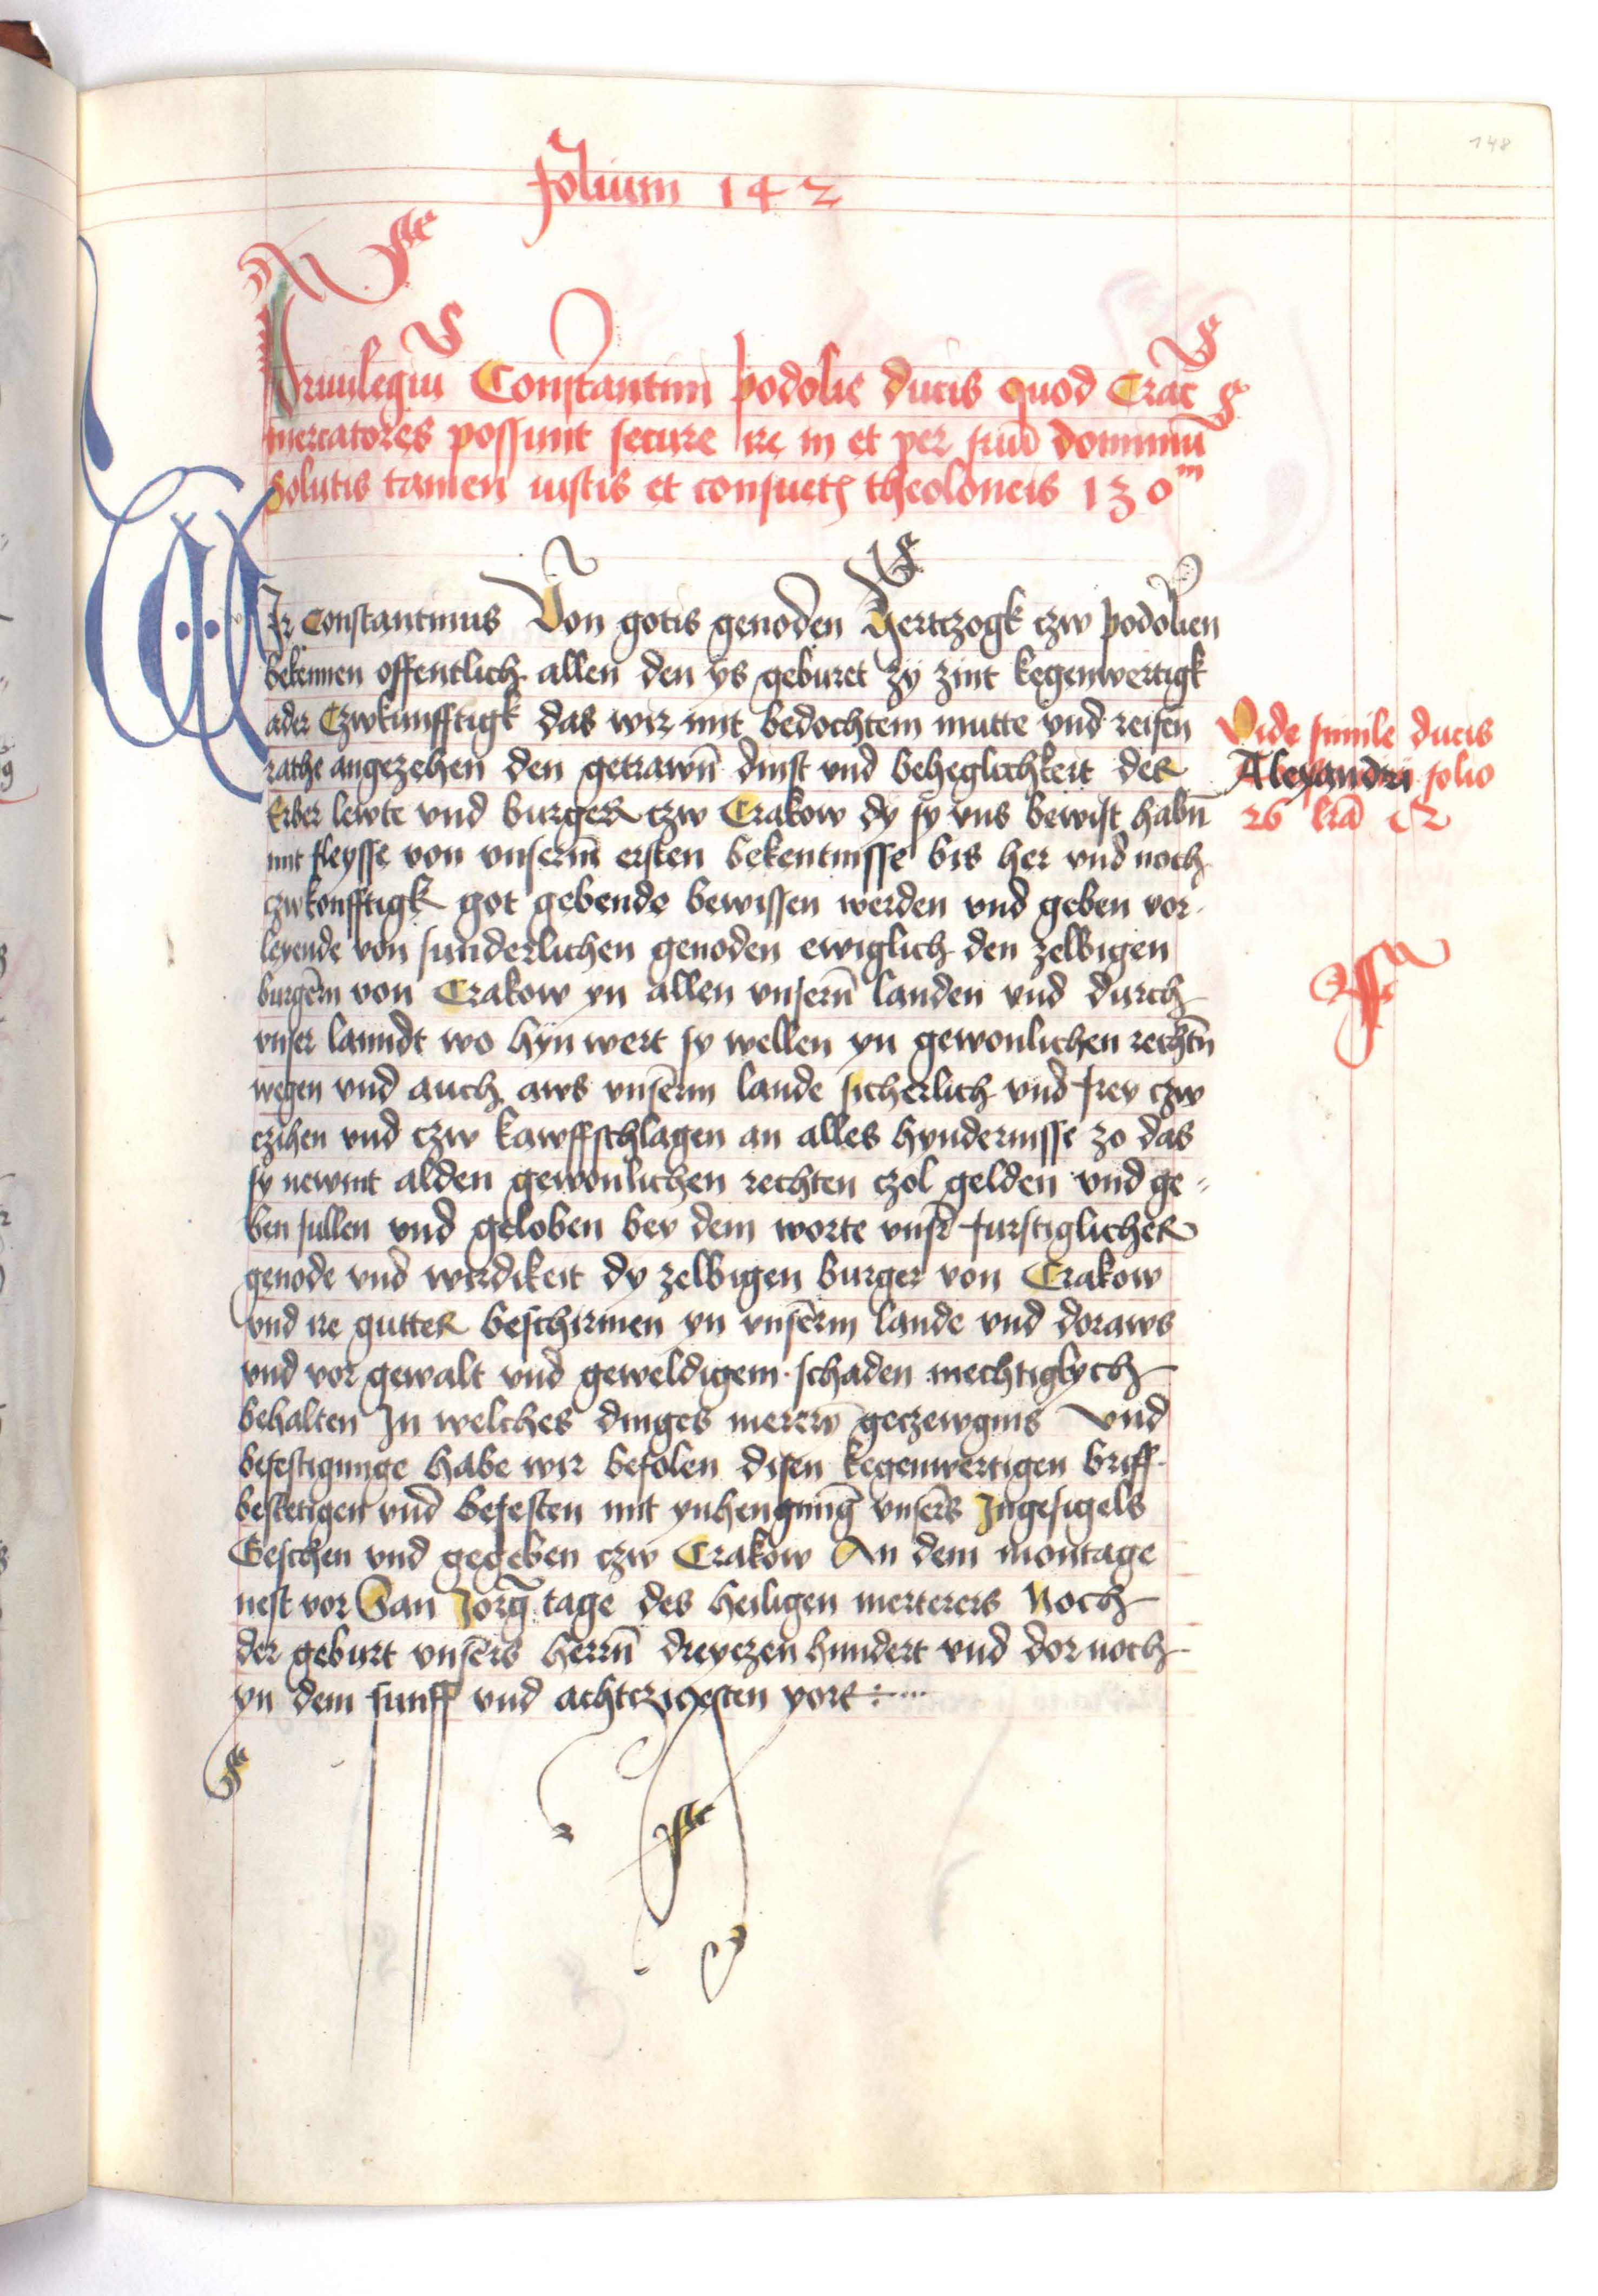 folium 142
148
Priuilegiū Constantini podolie ducis quod Crac̄
mercatores possunt secure ire in et per suū dominiū
solutis tamen iustis et consuet theoloneis 130m
WIr Constantinus Von gotis genoden Hertczogk czw podolien
bekennen offentlich allen den ys geburet zy zint kegenwertigk
ader Czwkunfftigk das wir mit bedochtem mutte vnd reifen
rathe angezehen den getrawn̄ dinst vnd beheglichkeit der
Erber lewte vnd burger czw Crakow dy sy vns bewist habn̄
mit fleysse von vnserm̄ ersten bekentnisse bis her vnd noch
czwkonfftigk got gebende bewissen werden vnd geben vor
leyende von sunderlichen genoden ewiglich den zelbigen
burgērn von Crakow yn allen vnsern̄ landen vnd durch
vnser lanndt wo hyn wert sy wellen yn gewonlichen rechtn̄
wegen vnd auch aws vnsērm lande sicherlich vnd frey czw
czihen vnd czw kawffschlagen an alles hyndernisse zo das
sy newnt alden gewonlichen rechten czol gelden vnd ge-
ben sullen vnd geloben bey dem worte vnsr̄ furstiglicher
genode vnd wirdikeit dy zelbigen burger von Crakow
vnd ire gutter beschirmen yn vnsērm lande vnd doraws
vnd vor gewalt vnd geweldigem schaden mechtiglych
behalten In welches dinges merern̄ geczewgnis Vnd
befestigunge habe wir befolen disen kegenwertigen briff
bestetigen vnd befesten mit ynhengunḡ vnsērs Ingesigels
Geschen vnd gegeben czw Crakow An dem montage
nest vor San Jorḡ tage des heiligen merterers Noch
der geburt vnsērs herrn̄ dreyczen hundert vnd dor noch
yn dem funff vnd achtczigesten yore
Vide simile ducis
Alexandri folio
26 lrā